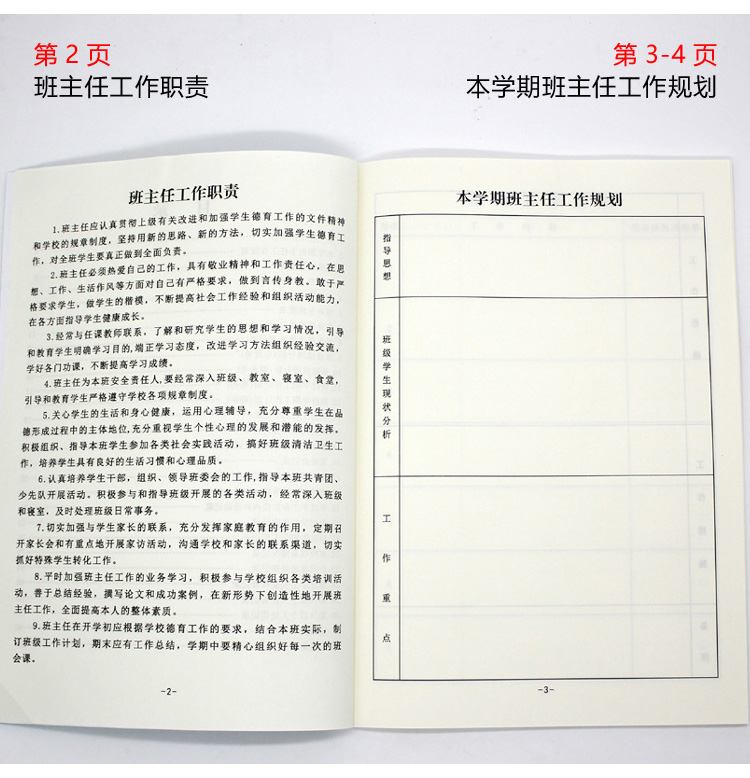 第 2 页
班主任工作职责
第 3-4 页
本学期班主任工作规划
班主任工作职责
1.班主任应认真贯彻上级有关改进和加强学生德育工作的文件精神
和学校的规章制度，坚持用新的思路、新的方法，切实加强学生德育工
作，对全班学生要真正做到全面负责。
2.班主任必须热爱自己的工作，具有敬业精神和工作责任心，在思
想、工作、生活作风等方面对自己有严格要求，做到言传身教。敢于严
格要求学生，做学生的楷模，不断提高社会工作经验和组织活动能力，
在各方面指导学生健康成长。
3.经常与任课教师联系，了解和研究学生的思想和学习情况，引导
和教育学生明确学习目的,端正学习态度，改进学习方法组织经验交流，
学好各门功课，不断提高学习成绩。
4.班主任为本班安全责任人,要经常深入班级、教室、寝室、食堂，
引导和教育学生严格遵守学校各项规章制度。
5.关心学生的生活和身心健康，运用心理辅导，充分尊重学生在品
德形成过程中的主体地位,充分重视学生个性心理的发展和潜能的发挥。
积极组织、指导本班学生参加各类社会实践活动，搞好班级清洁卫生工
作，培养学生具有良好的生活习惯和心理品质。
6.认真培养学生干部，组织、领导班委会的工作,指导本班共青团、
少先队开展活动。积极参与和指导班级开展的各类活动，经常深入班级
和寝室，及时处理班级日常事务。
7.切实加强与学生家长的联系，充分发挥家庭教育的作用，定期召
开家长会和有重点地开展家访活动，沟通学校和家长的联系渠道，切实
抓好特殊学生转化工作。
8.平时加强班主任工作的业务学习，积极参与学校组织各类培训活
动，善于总结经验，撰写论文和成功案例，在新形势下创造性地开展班
主任工作，全面提高本人的整体素质。
9.班主任在开学初应根据学校德育工作的要求，结合本班实际，制
订班级工作计划，期末应有工作总结，学期中要精心组织好每一次的班
会课。
-2-
本学期班主任工作规划
指导思想
班级学生现状分析
工作重点
-3-